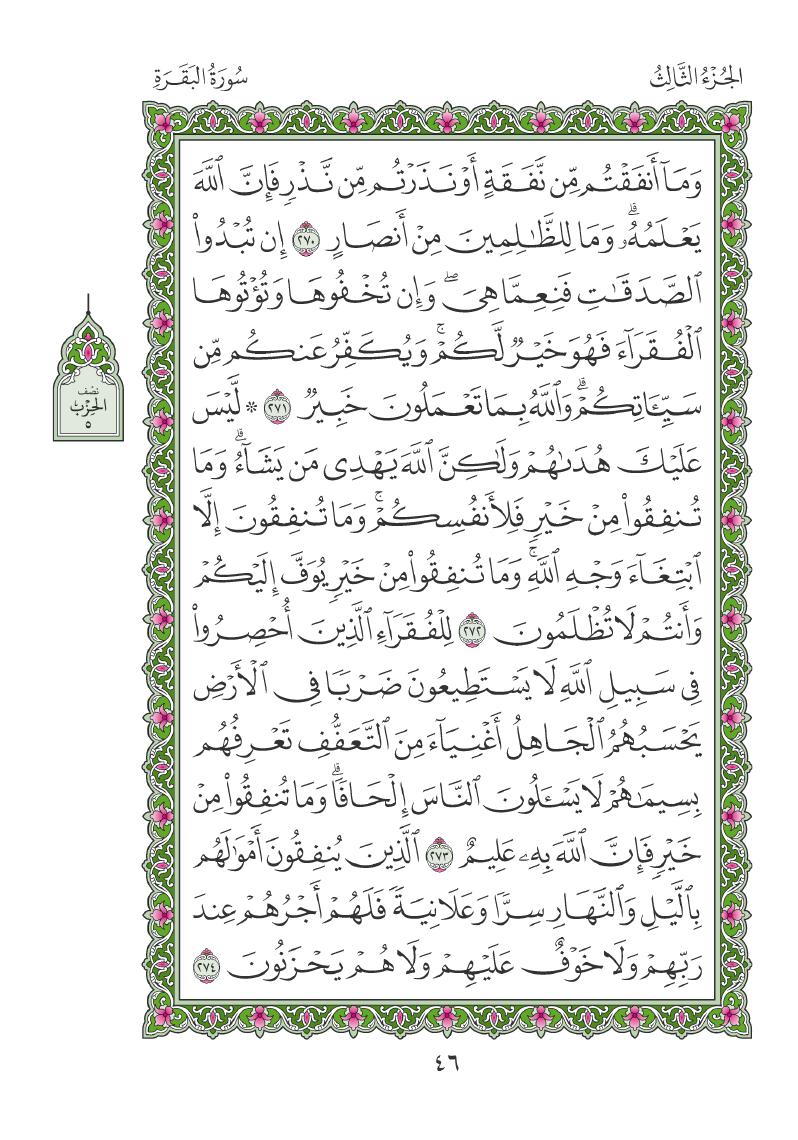 الجُزْءُ الثَّالِثُ
سُورَةُ البَقَرَةِ
وَمَآ أَنفَقْتُم مِّن نَّفَقَةٍ أَوْ نَذَرْتُم مِّن نَّذْرٍ فَإِنَّ ٱللَّهَ
يَعْلَمُهُۥۗ وَمَا لِلظَّٰلِمِينَ مِنْ أَنصَارٍ ٢٧٠ إِن تُبْدُوا۟
ٱلصَّدَقَٰتِ فَنِعِمَّا هِىَۖ وَإِن تُخْفُوهَا وَتُؤْتُوهَا
ٱلْفُقَرَآءَ فَهُوَ خَيْرٌ لَّكُمْۚ وَيُكَفِّرُ عَنكُم مِّن
سَيِّـَٔاتِكُمْۗ وَٱللَّهُ بِمَا تَعْمَلُونَ خَبِيرٌ ٢٧١ * لَّيْسَ
عَلَيْكَ هُدَىٰهُمْ وَلَٰكِنَّ ٱللَّهَ يَهْدِى مَن يَشَآءُۗ وَمَا
تُنفِقُوا۟ مِنْ خَيْرٍ فَلِأَنفُسِكُمْۚ وَمَا تُنفِقُونَ إِلَّا
ٱبْتِغَآءَ وَجْهِ ٱللَّهِۚ وَمَا تُنفِقُوا۟ مِنْ خَيْرٍ يُوَفَّ إِلَيْكُمْ
وَأَنتُمْ لَا تُظْلَمُونَ ٢٧٢ لِلْفُقَرَآءِ ٱلَّذِينَ أُحْصِرُوا۟
فِى سَبِيلِ ٱللَّهِ لَا يَسْتَطِيعُونَ ضَرْبًا فِى ٱلْأَرْضِ
يَحْسَبُهُمُ ٱلْجَاهِلُ أَغْنِيَآءَ مِنَ ٱلتَّعَفُّفِ تَعْرِفُهُم
بِسِيمَٰهُمْ لَا يَسْـَٔلُونَ ٱلنَّاسَ إِلْحَافًاۗ وَمَا تُنفِقُوا۟ مِنْ
خَيْرٍ فَإِنَّ ٱللَّهَ بِهِۦ عَلِيمٌ ٢٧٣ ٱلَّذِينَ يُنفِقُونَ أَمْوَٰلَهُم
بِٱلَّيْلِ وَٱلنَّهَارِ سِرًّا وَعَلَانِيَةً فَلَهُمْ أَجْرُهُمْ عِندَ
رَبِّهِمْ وَلَا خَوْفٌ عَلَيْهِمْ وَلَا هُمْ يَحْزَنُونَ ٢٧٤
نِصْف
الحِزْب
٥
٤٦